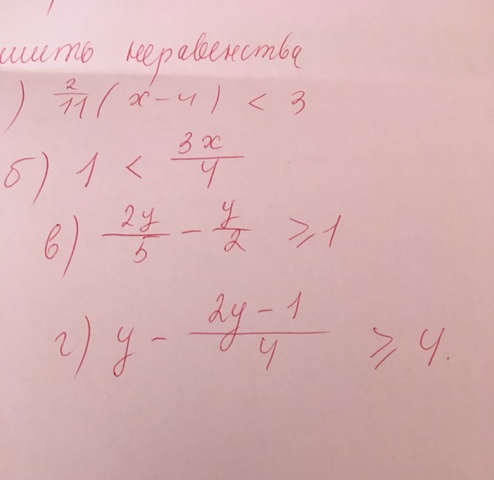 шить неравенства
) 2/11 (x-4) < 3
б) 1 < 3x/4
в) 2y/5 - y/2 ⩾ 1
г) y - 2y-1/4 ⩾ 4.